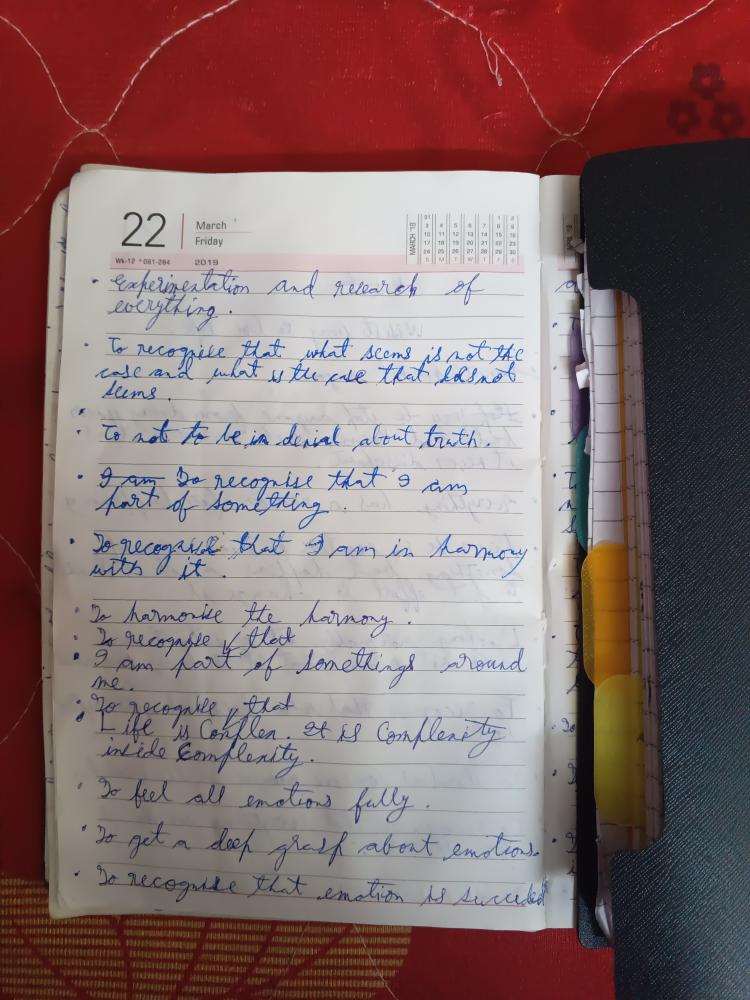 22 March
Friday
Wk-12 * 081-284 2019
MARCH '19
31 3 10 17 24 S
4 11 18 25 M
5 12 19 26 T
6 13 20 27 W
7 14 21 28 T
1 8 15 22 29 F
2 9 16 23 30 S
• Experimentation and research of
everything.
• To recognise that what seems is not the
case and what is the case that does not
seems.
• To not to be in denial about truth.
• I am To recognise that I am
part of something.
• To recognise that I am in harmony
with it.
• To harmonise the harmony.
• To recognise that
• I am part of somethings around
me.
• To recognise that
• Life is Complex. It is Complexity
inside Complexity.
• To feel all emotions fully.
• To get a deep grasp about emotions.
• To recognise that emotion is succeded